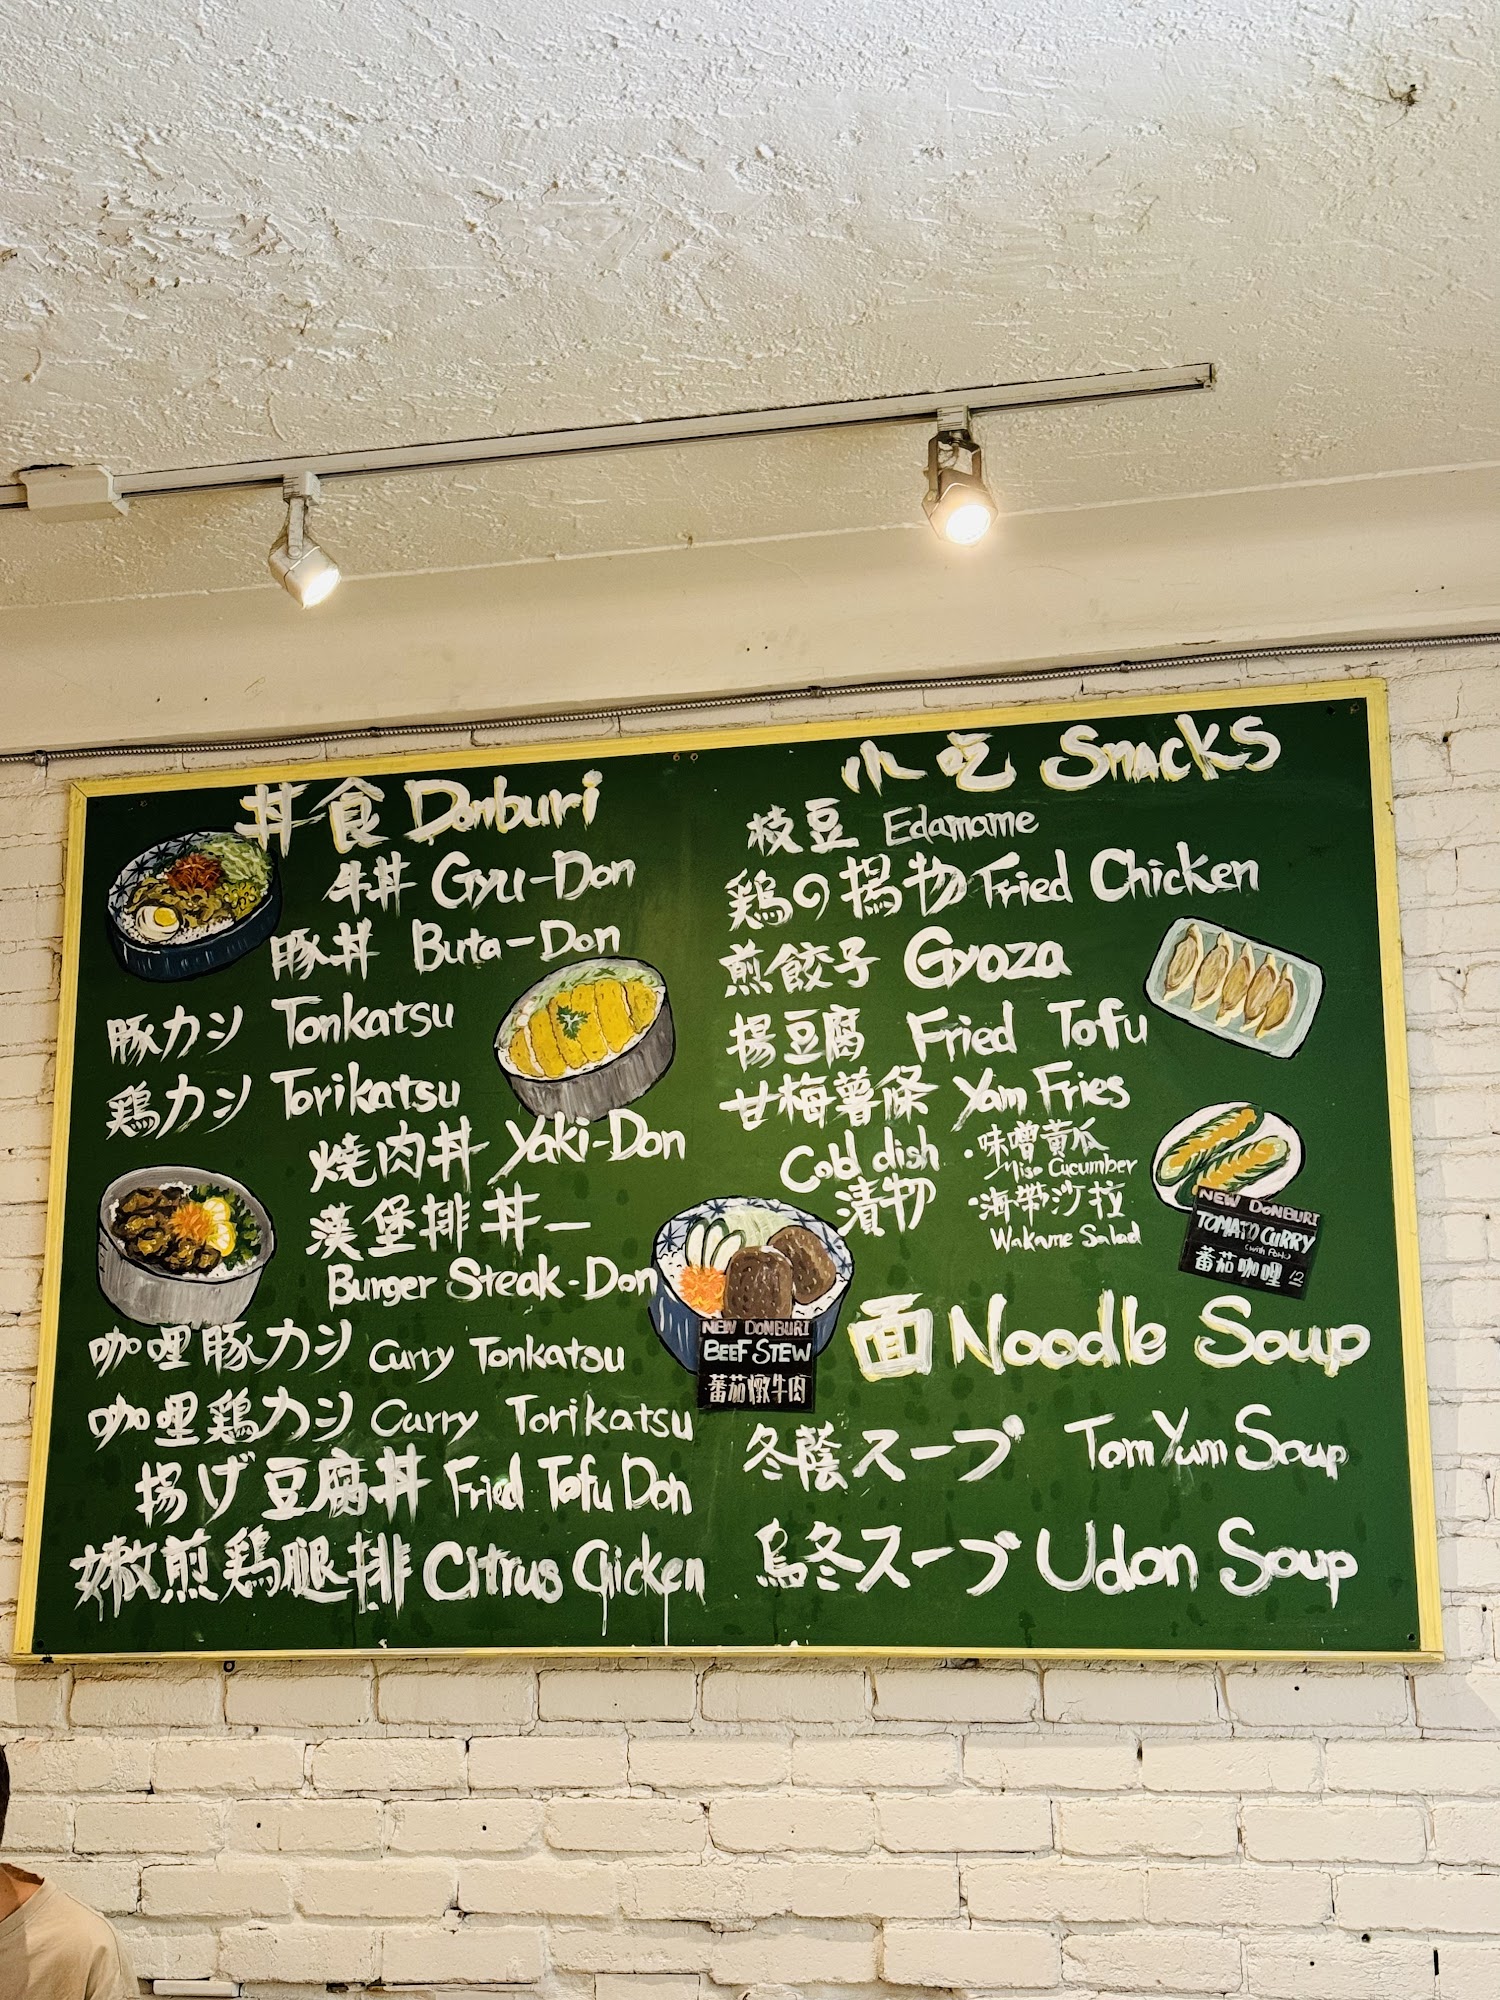 丼食 Donburi
牛丼 Gyu-Don
豚丼 Buta-Don
豚カシ Tonkatsu
鶏カシ Torikatsu
焼肉丼 Yaki-Don
漢堡排丼-
Burger Steak-Don
咖哩豚カシ Curry Tonkatsu
咖哩鶏カシ Curry Torikatsu
揚げ豆腐丼 Fried Tofu Don
嫩煎鶏腿排 Citrus Chicken
NEW DONBURI
BEEF STEW
蕃茄燉牛肉
小吃 Snacks
枝豆 Edamame
鶏の揚物 Fried Chicken
煎餃子 Gyoza
揚豆腐 Fried Tofu
甘梅薯條 Yam Fries
Cold dish
漬物
・味噌黄瓜
Miso Cucumber
・海帯沙拉
Wakame Salad
NEW DONBURI
TOMATO CURRY
(with Pork)
蕃茄咖哩 12
面 Noodle Soup
冬蔭スープ Tom Yum Soup
烏冬スープ Udon Soup